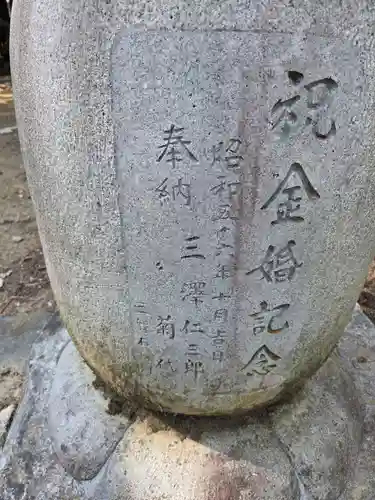 祝金婚記念
昭和五十六年十月吉日
奉納
三澤仁三郎
菊代